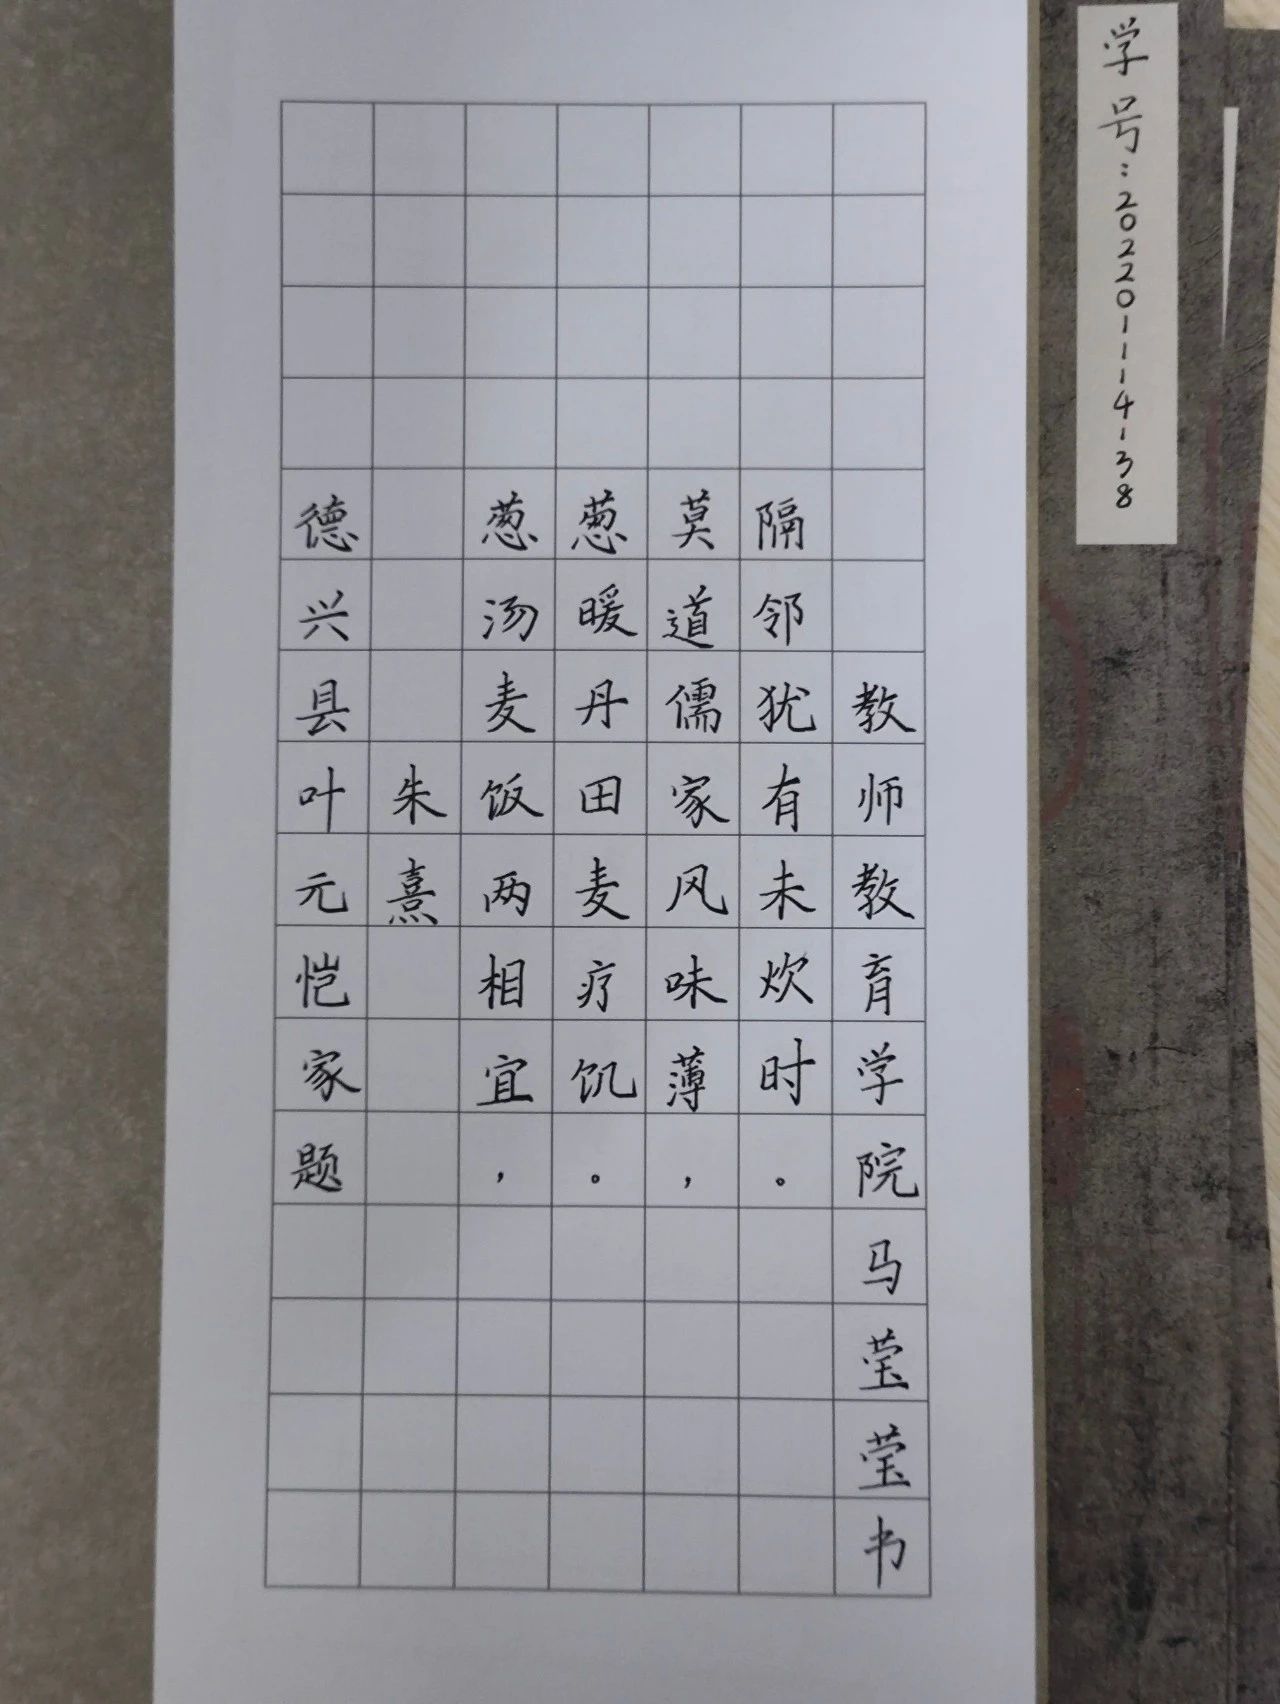 德兴县叶元恺家题
朱熹
葱汤麦饭两相宜，
葱暖丹田麦疗饥。
莫道儒家风味薄，
隔邻犹有未炊时。
教师教育学院马莹莹书
学号：202201114138